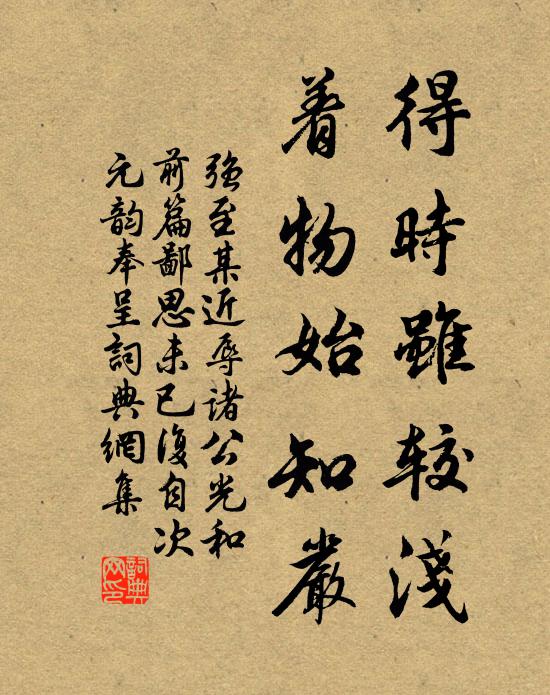 得時雖較淺
着物始知嚴
強至某近辱諸公光和
前篇鄙思未已復自次
元韵奉呈詞典網集
詞典
网印